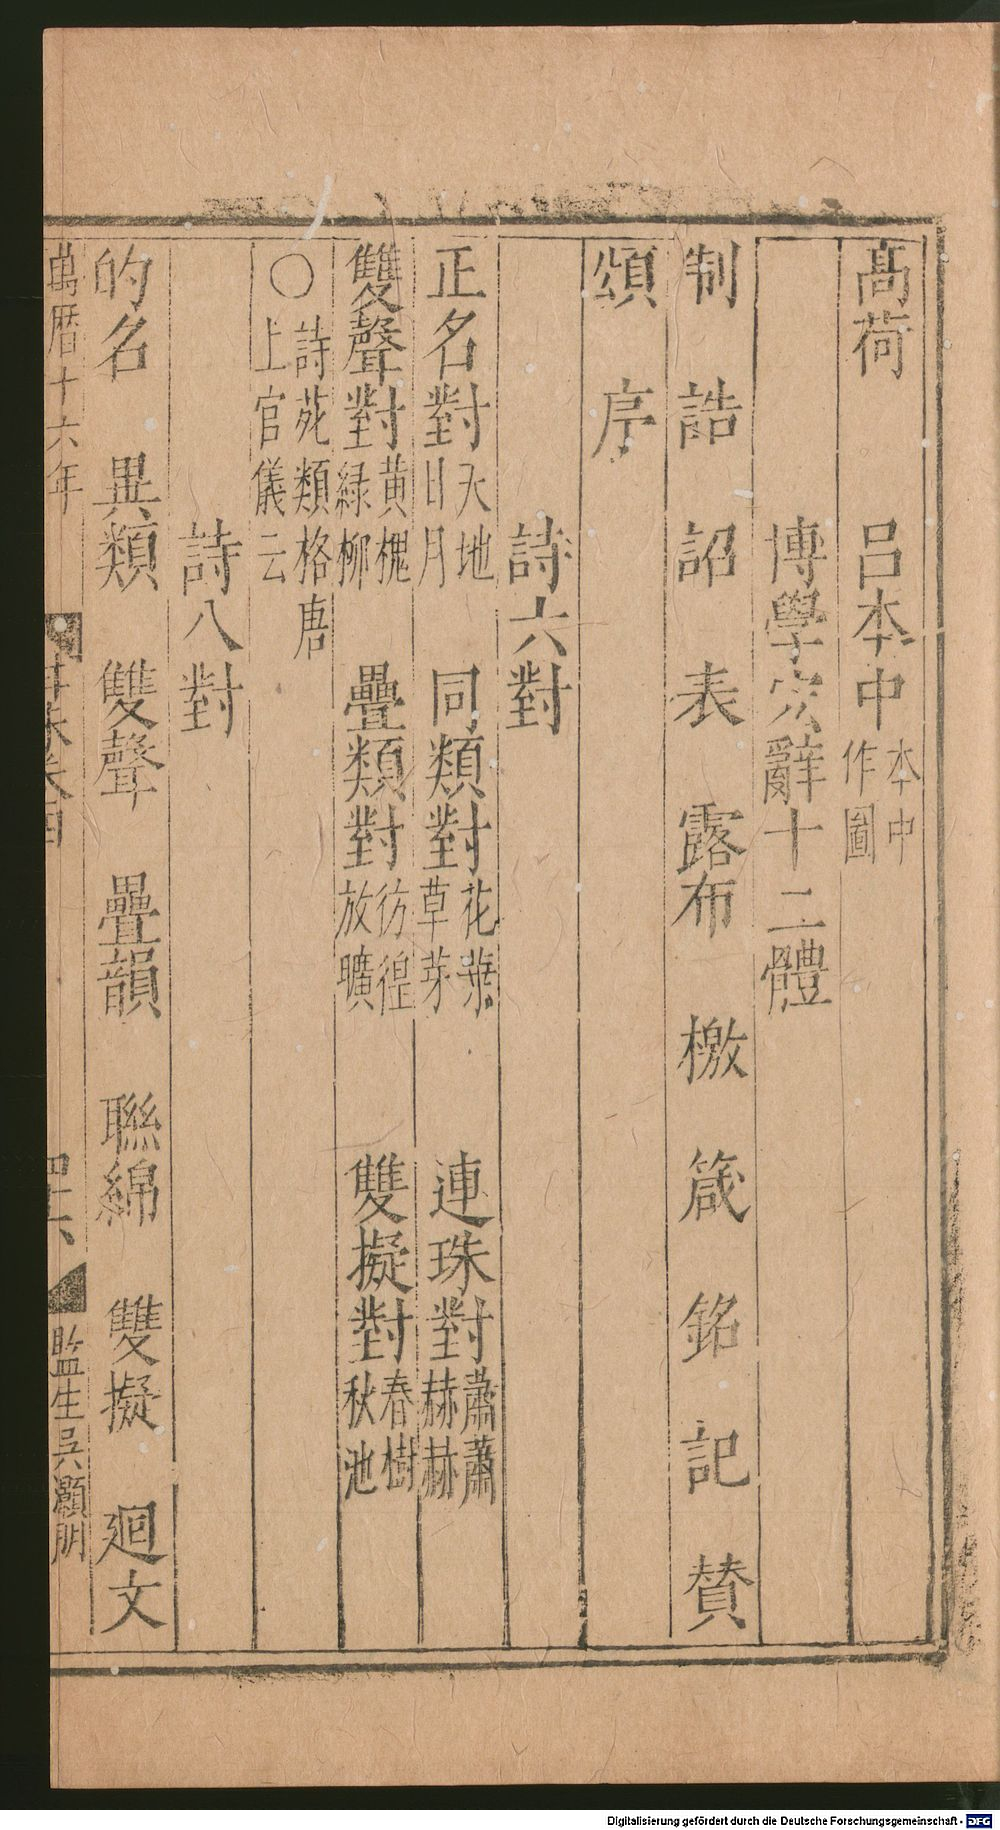 髙荷　吕本中　本中作圖
博學宏辭十二體
制　誥　詔　表　露布　檄　箴　銘　記　賛
頌　序
詩六對
正名對　天地日月　同類對　花葉草芽　連珠對　蕭蕭赫赫
雙聲對　黄槐緑柳　疊類對　彷徨放曠　雙擬對　春樹秋池
○詩苑類格唐上官儀云
詩八對
的名　異類　雙聲　疊韻　聯綿　雙擬　廻文
萬曆十六年
四十六
監生吳灝朋
Digitalisierung gefördert durch die Deutsche Forschungsgemeinschaft - DFG